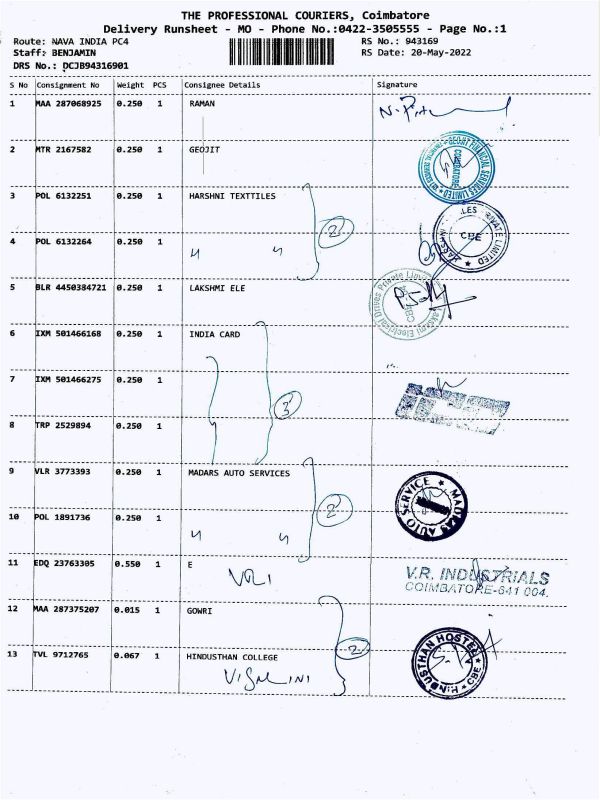 THE PROFESSIONAL COURIERS, Coimbatore
Delivery Runsheet - MO - Phone No.:0422-3505555 - Page No.:1
Route: NAVA INDIA PC4 RS No.: 943169
Staff: BENJAMIN RS Date: 20-May-2022
DRS No.: DCJB94316901
S No Consignment No Weight PCS Consignee Details Signature
1 MAA 287068925 0.250 1 RAMAN
2 MTR 2167582 0.250 1 GEOJIT
GEOJIT FINANCIAL SERVICES LIMITED
COIMBATORE
3 POL 6132251 0.250 1 HARSHNI TEXTTILES
2
LES PRIVATE LIMITED
CBE
4 POL 6132264 0.250 1
5 BLR 4450384721 0.250 1 LAKSHMI ELE
Lakshmi Electrical Drives Private Limited
6 IXM 501466168 0.250 1 INDIA CARD
7 IXM 501466275 0.250 1
3
8 TRP 2529894 0.250 1
9 VLR 3773393 0.250 1 MADARS AUTO SERVICES
2
MADRAS AUTO SERVICE
10 POL 1891736 0.250 1
11 EDQ 23763305 0.550 1 E
VRI
V.R. INDUSTRIALS
COIMBATORE-641 004.
12 MAA 287375207 0.015 1 GOWRI
2
13 TVL 9712765 0.067 1 HINDUSTHAN COLLEGE
HINDUSTHAN HOSTEL
CBE